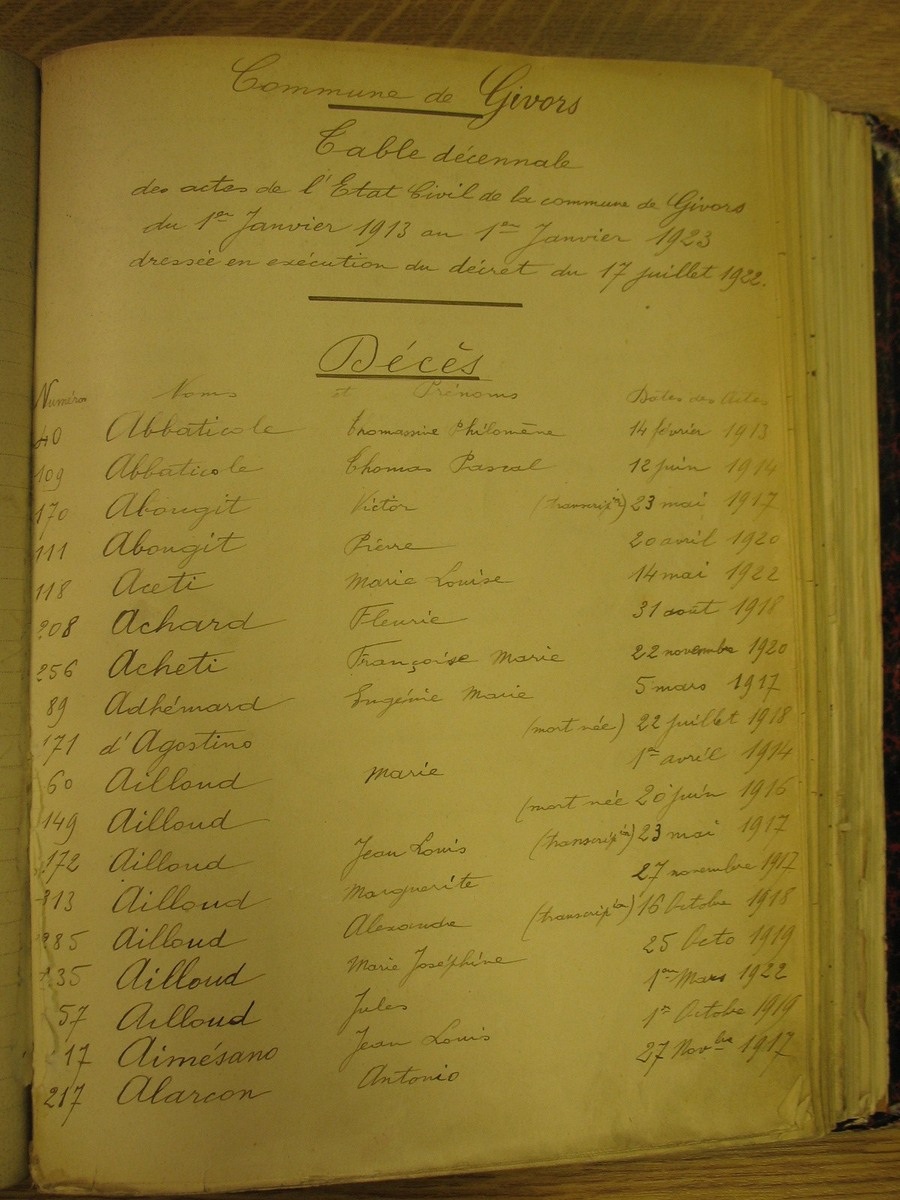 Commune de Givors
Table décennale
des actes de l'Etat Civil de la commune de Givors
du 1er Janvier 1913 au 1er Janvier 1923
dressée en exécution du décret du 17 juillet 1922.
Décès
Numéros Noms et Prénoms Dates des Actes
40 Abbaticole Tromassine Philomène 14 février 1913
109 Abbaticole Thomas Pascal 12 juin 1914
170 Abougit Victor (transcripion) 23 mai 1917
111 Abougit Pierre 20 avril 1920
118 Aceti Marie Louise 14 mai 1922
208 Achard Fleurie 31 août 1918
256 Acheti Françoise Marie 22 novembre 1920
89 Adhémard Eugénie Marie 5 mars 1917
171 d'Agostino (mort née) 22 juillet 1918
60 Ailloud Marie 1er avril 1914
149 Ailloud (mort née 20 juin 1916
172 Ailloud Jean Louis (transcripion) 23 mai 1917
313 Ailloud Marguerite 27 novembre 1917
285 Ailloud Alexandre (transcripion) 16 Octobre 1918
35 Ailloud Marie Joséphine 25 Octo 1919
57 Ailloud Jules 1er Mars 1922
17 Aimésano Jean Louis 1er Octobre 1919
217 Alarcon Antonio 27 Novbre 1917